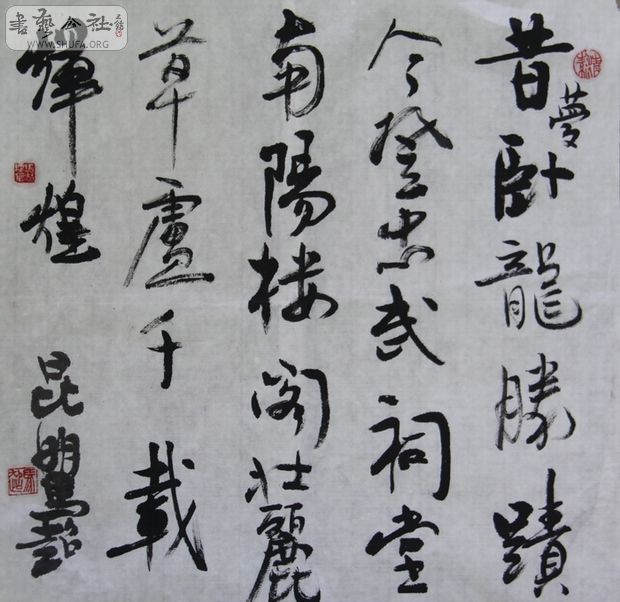 昔夢卧龍勝蹟
今登忠武祠堂
南陽楼阁壮麗
草廬千載
輝煌
昆明馬韶
書藝公社
WWW.SHUFA.ORG